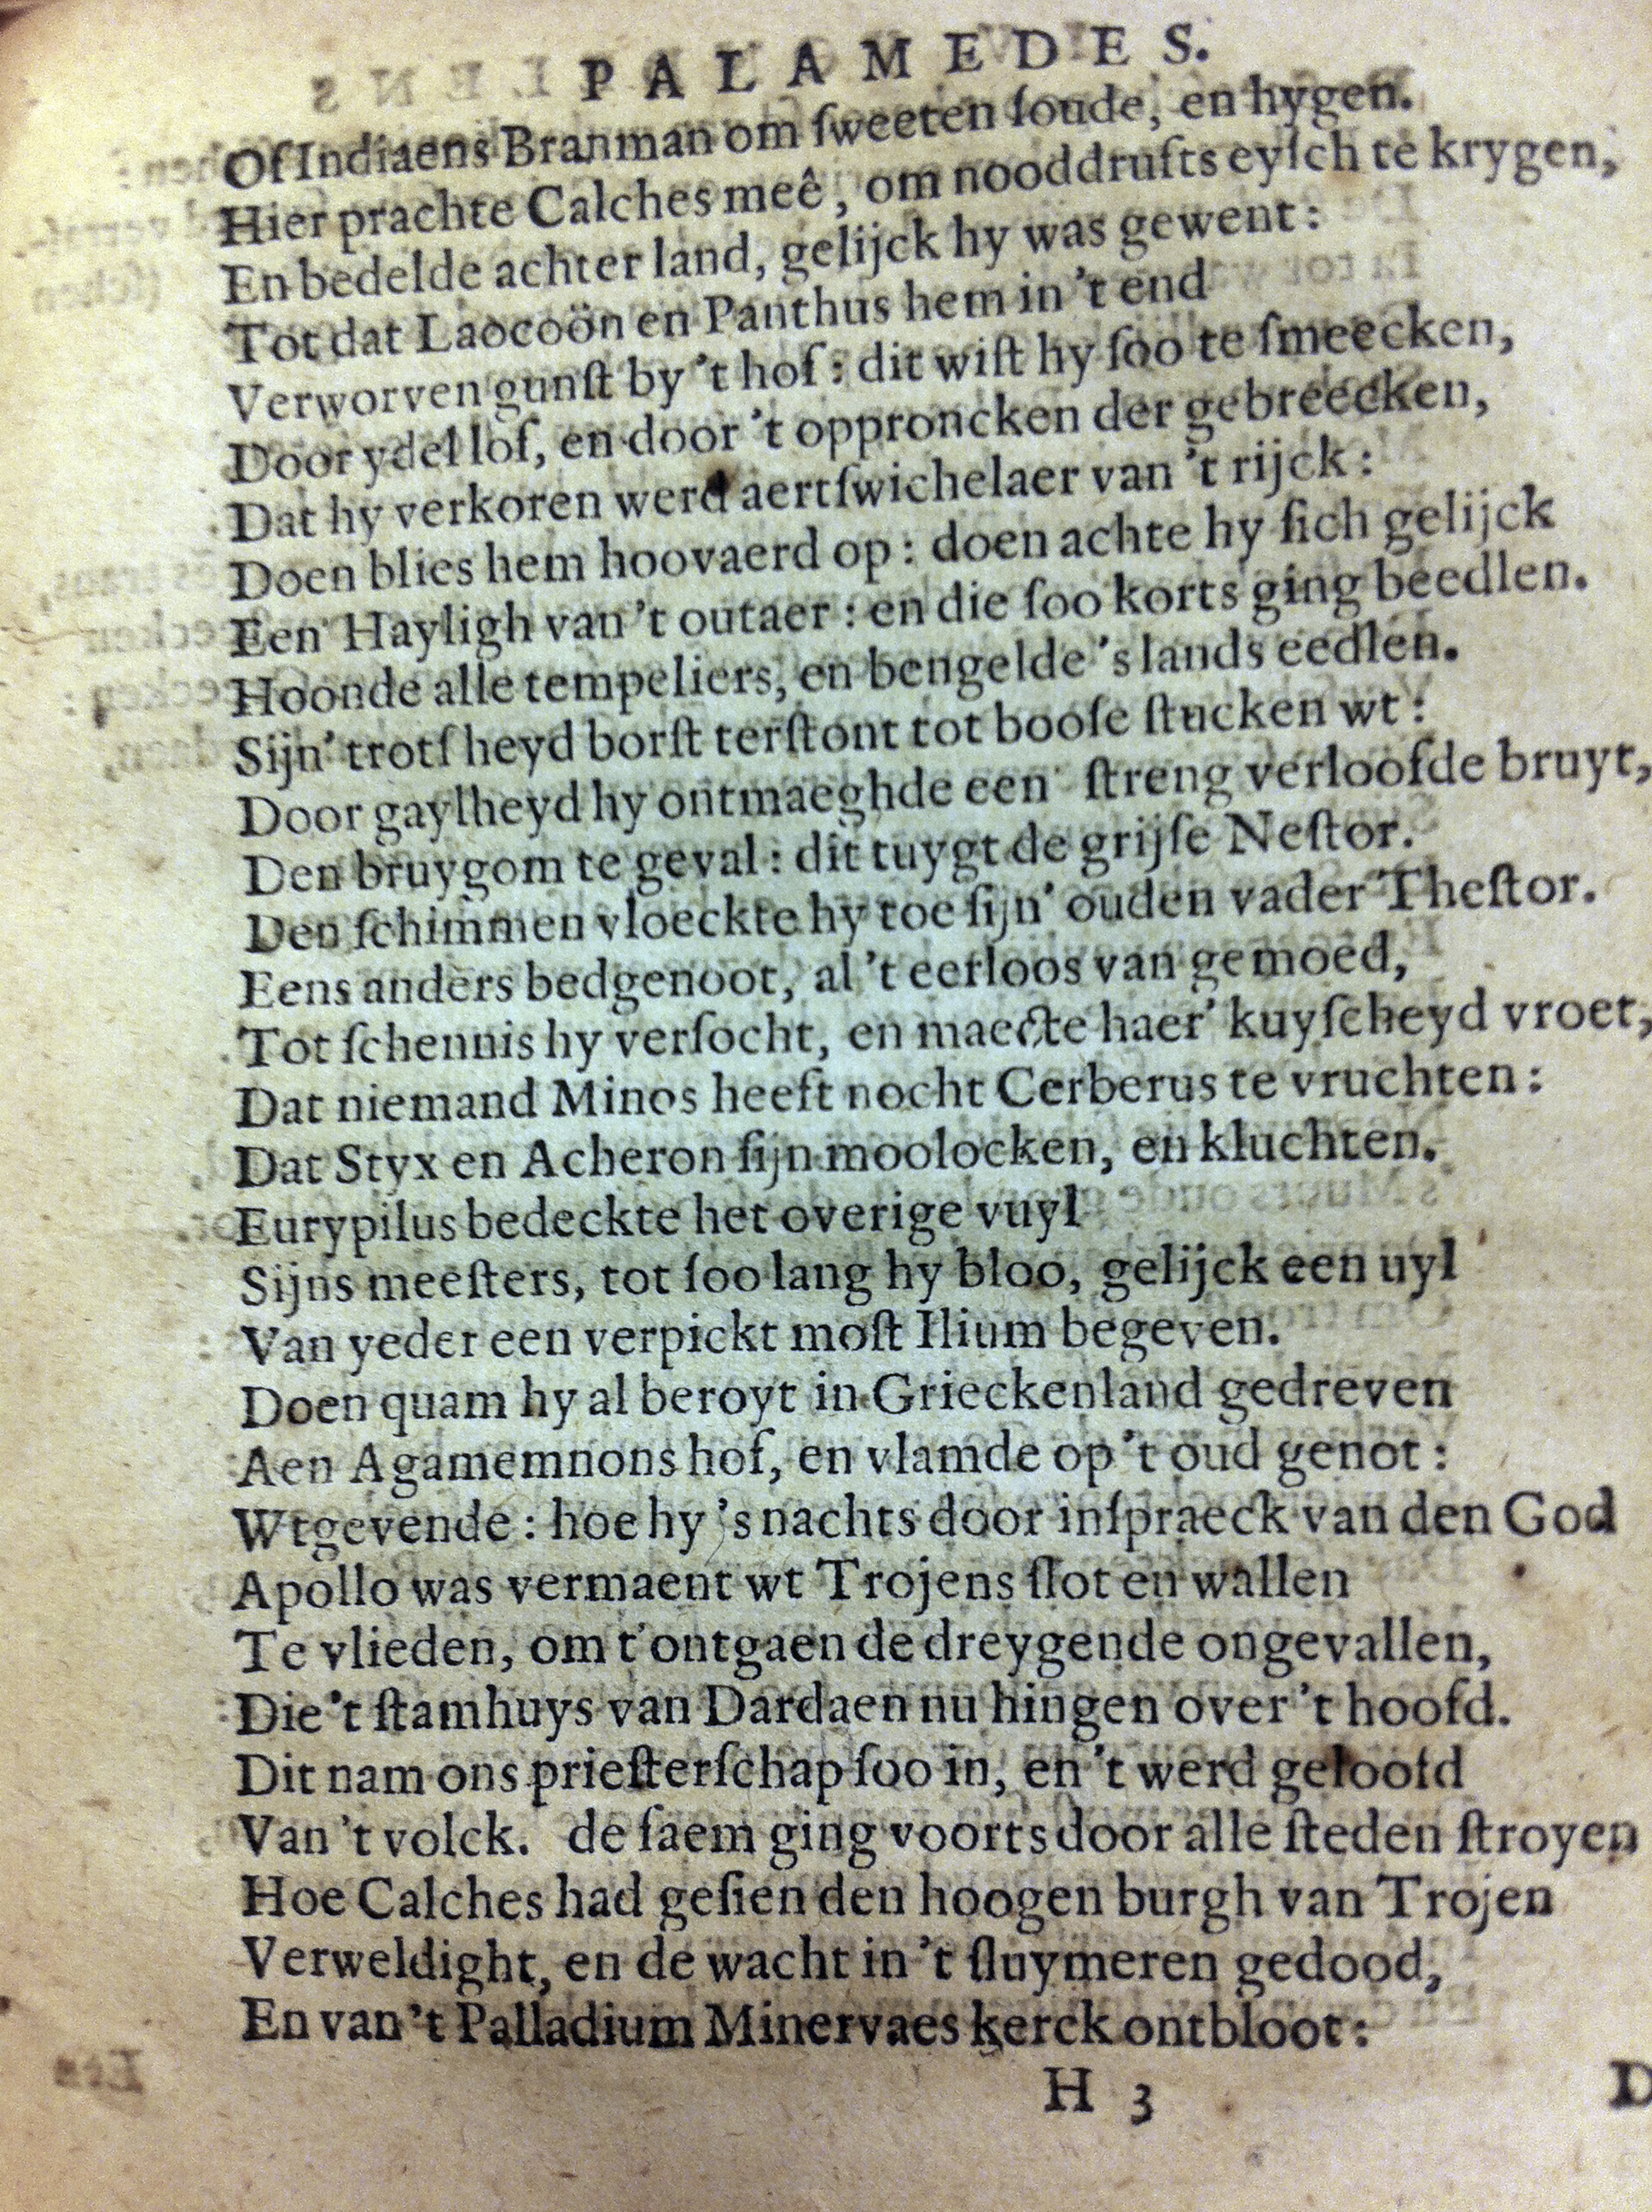 PALAMEDES.
Of Indiaens Branman om ſweeten ſoude, en hygen.
Hier prachte Calches meê, om nooddrufts eyſch te krygen,
En bedelde achter land, gelijck hy was gewent:
Tot dat Laocoön en Panthus hem in 't end
Verworven gunſt by 't hof: dit wiſt hy ſoo te ſmeecken,
Door ydel lof, en door 't opproncken der gebreecken,
Dat hy verkoren werd aertſwichelaer van 't rijck:
Doen blies hem hoovaerd op: doen achte hy ſich gelijck
Een Hayligh van 't outaer: en die ſoo korts ging beedlen.
Hoonde alle tempeliers, en bengelde 's lands eedlen.
Sijn' trotſheyd borſt terſtont tot booſe ſtucken wt:
Door gaylheyd hy ontmaeghde een ſtreng verloofde bruyt,
Den bruygom te geval: dit tuygt de grijſe Neſtor.
Den ſchimmen vloeckte hy toe ſijn' ouden vader Theſtor.
Eens anders bedgenoot, al 't eerloos van gemoed,
Tot ſchennis hy verſocht, en maeckte haer' kuyſcheyd vroet,
Dat niemand Minos heeft nocht Cerberus te vruchten:
Dat Styx en Acheron ſijn moolocken, en kluchten.
Eurypilus bedeckte het overige vuyl
Sijns meeſters, tot ſoo lang hy bloo, gelijck een uyl
Van yeder een verpickt moſt Ilium begeven.
Doen quam hy al beroyt in Grieckenland gedreven
Aen Agamemnons hof, en vlamde op 't oud genot:
Wtgevende: hoe hy 's nachts door inſpraeck van den God
Apollo was vermaent wt Trojens ſlot en wallen
Te vlieden, om t'ontgaen de dreygende ongevallen,
Die 't ſtamhuys van Dardaen nu hingen over 't hoofd.
Dit nam ons prieſterſchap ſoo in, en 't werd geloofd
Van 't volck. de faem ging voorts door alle ſteden ſtroyen
Hoe Calches had geſien den hoogen burgh van Trojen
Verweldight, en de wacht in 't ſluymeren gedood,
En van 't Palladium Minervaes kerck ontbloot:
H 3